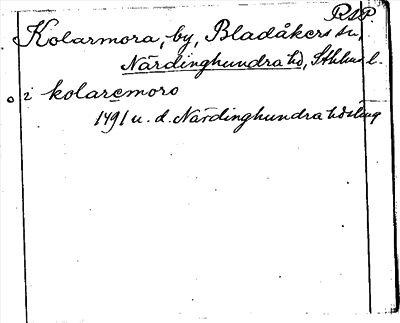 R.S.P.
Kolarmora, by, Bladåkers sn,
Närdinghundra hd, Sthlms l.
i kolaremoro
1491 u. d. Närdinghundra hdsting